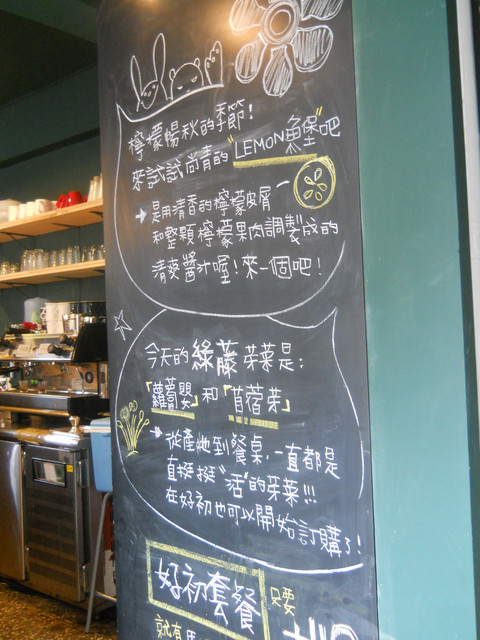 檸檬暢秋的季節!
來試試尚青的"LEMON魚堡"吧
→是用清香的檸檬皮屑
和整顆檸檬果肉調製成的
清爽醬汁喔!來一個吧!
今天的綠藤芽菜是:
「蘿蔔嬰」和「苜蓿芽」
→從產地到餐桌,一直都是
直挺挺"活"的芽菜!!!
在好初也可以開始訂購了!
好初套餐
只要
就有